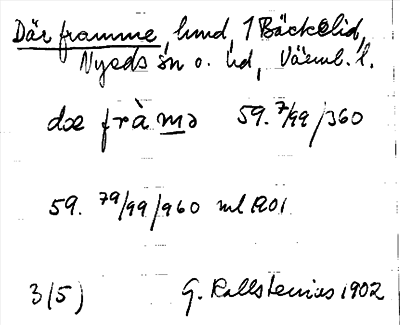 Där framme, hmd, 1 Bäckelid,
Nyeds sn o. hd, Värml. l.
dæ fràmə 59. 7/99/360
59. 79/99/960 ml 1201
3(5) G. Kallstenius 1902